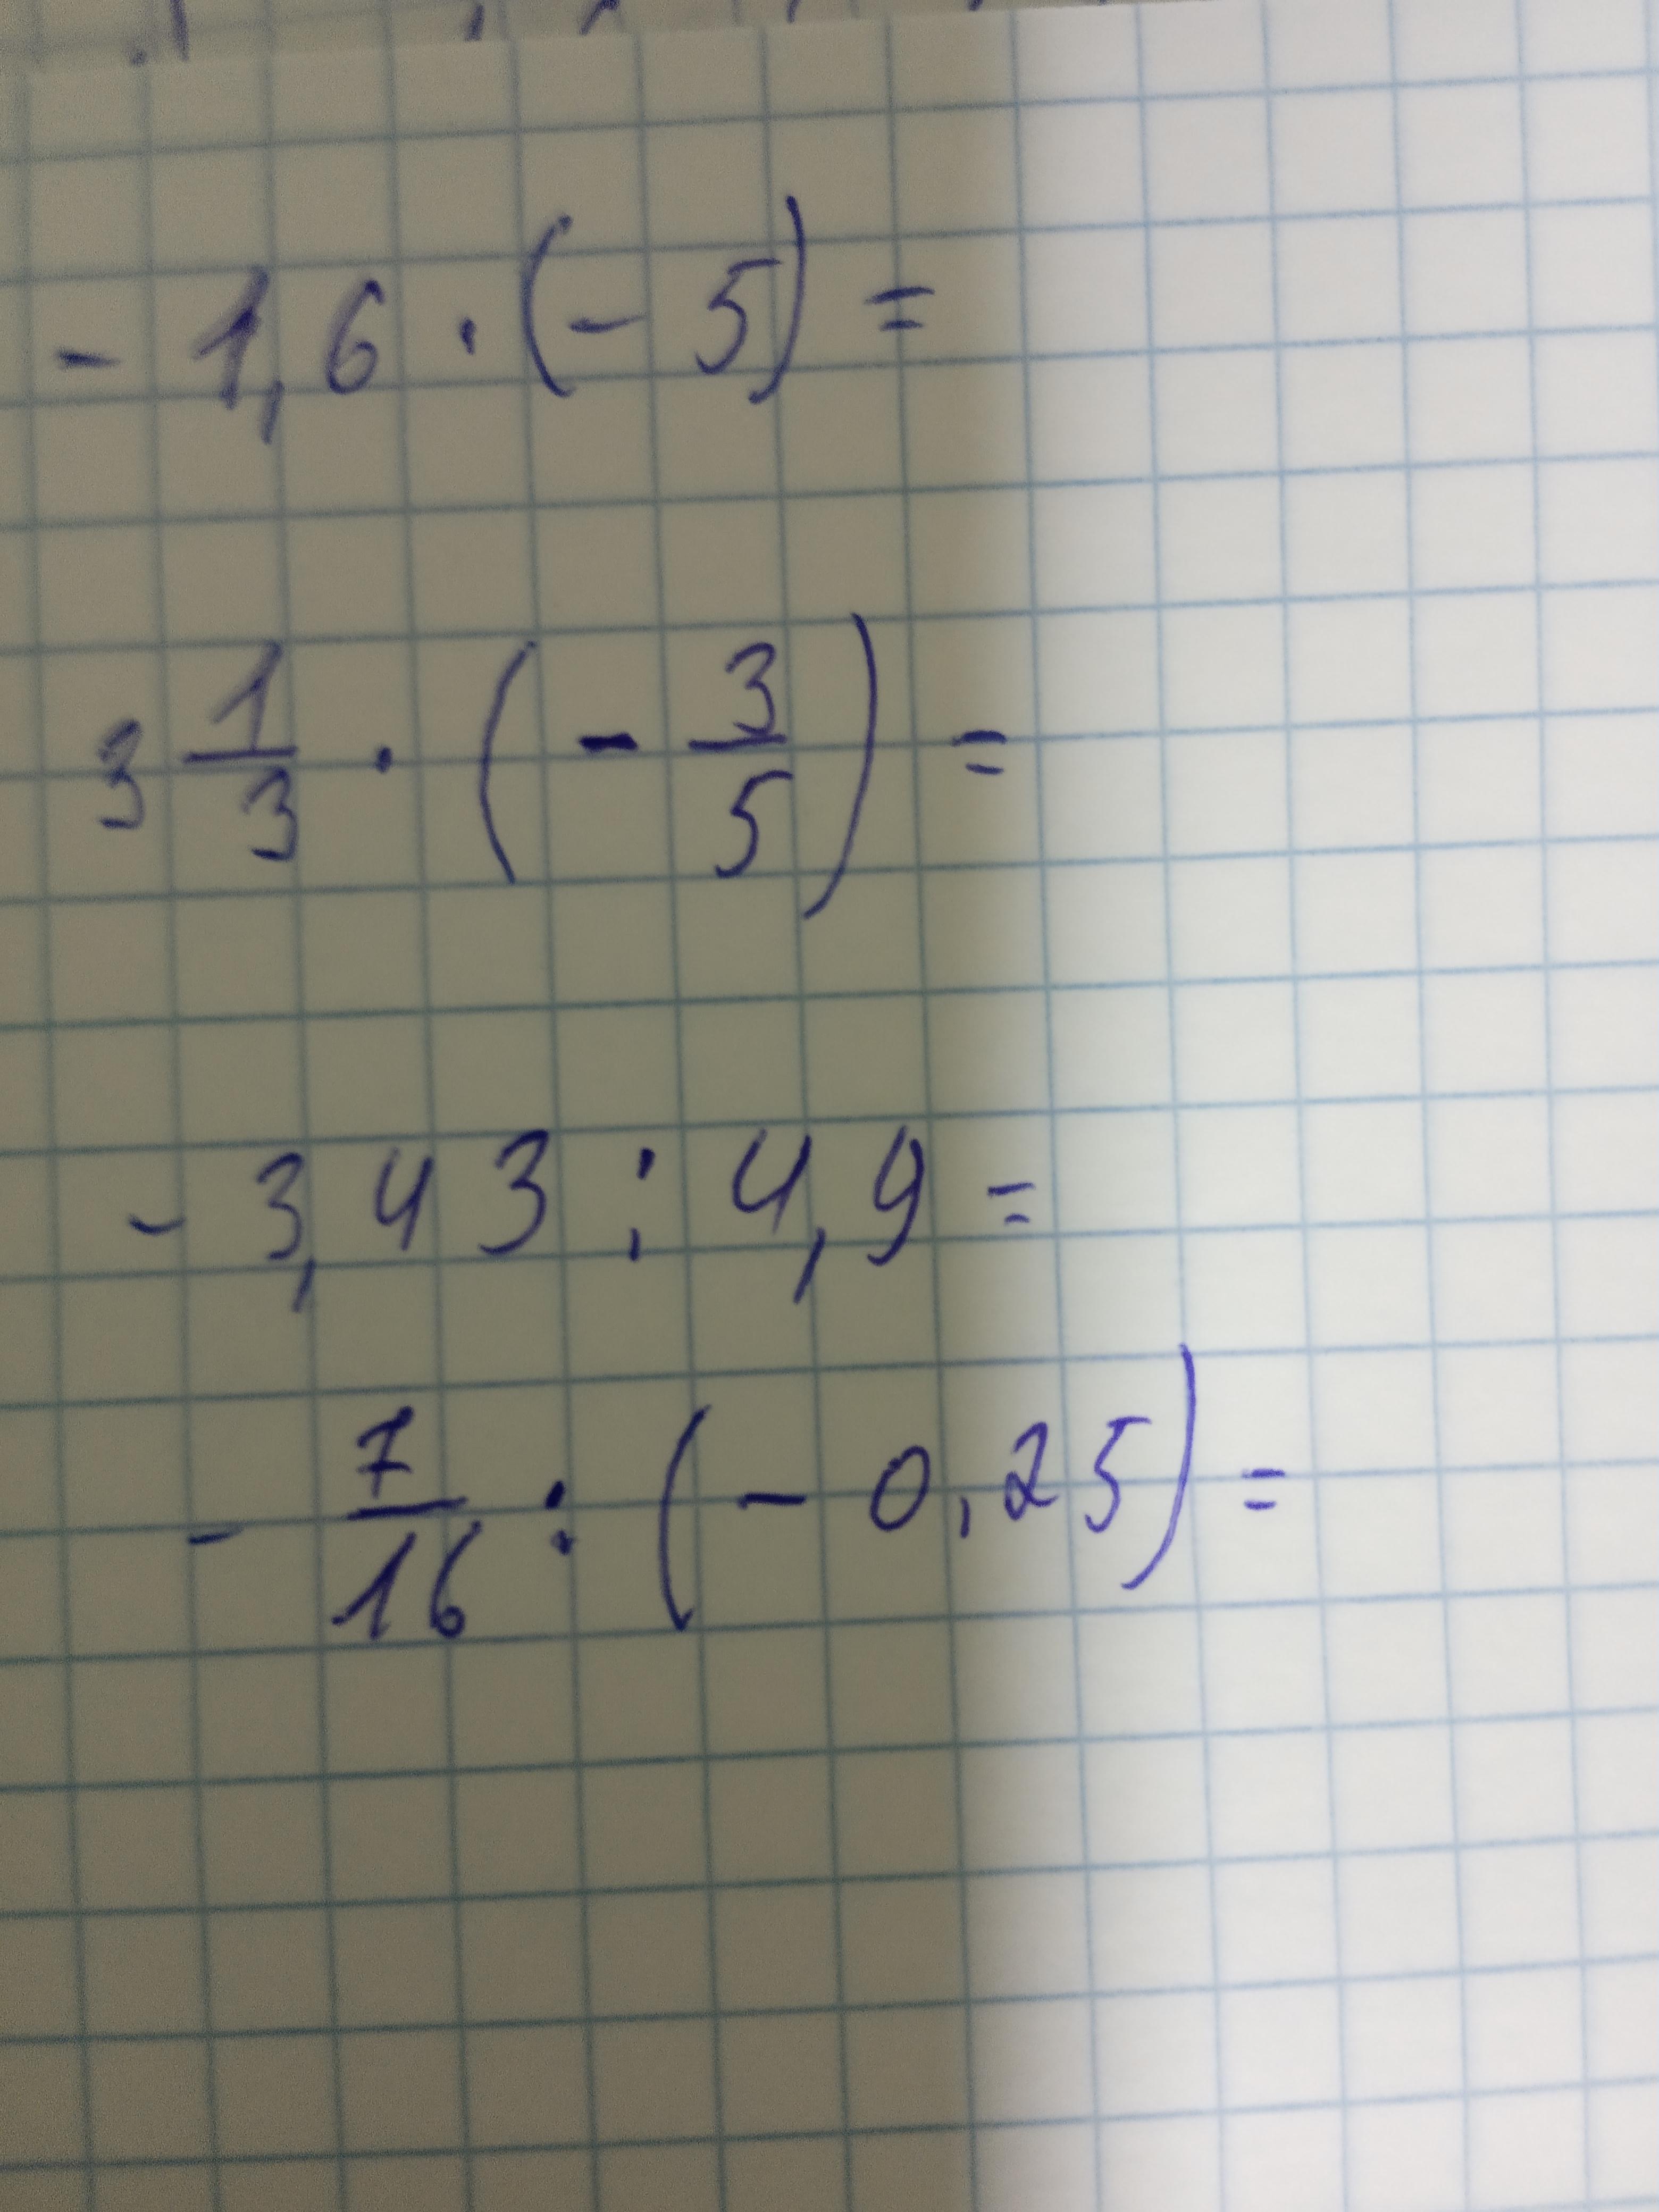 - 1,6 · (- 5) =
3 1/3 · (- 3/5) =
- 3,43 : 4,9 =
- 7/16 : (- 0,25) =